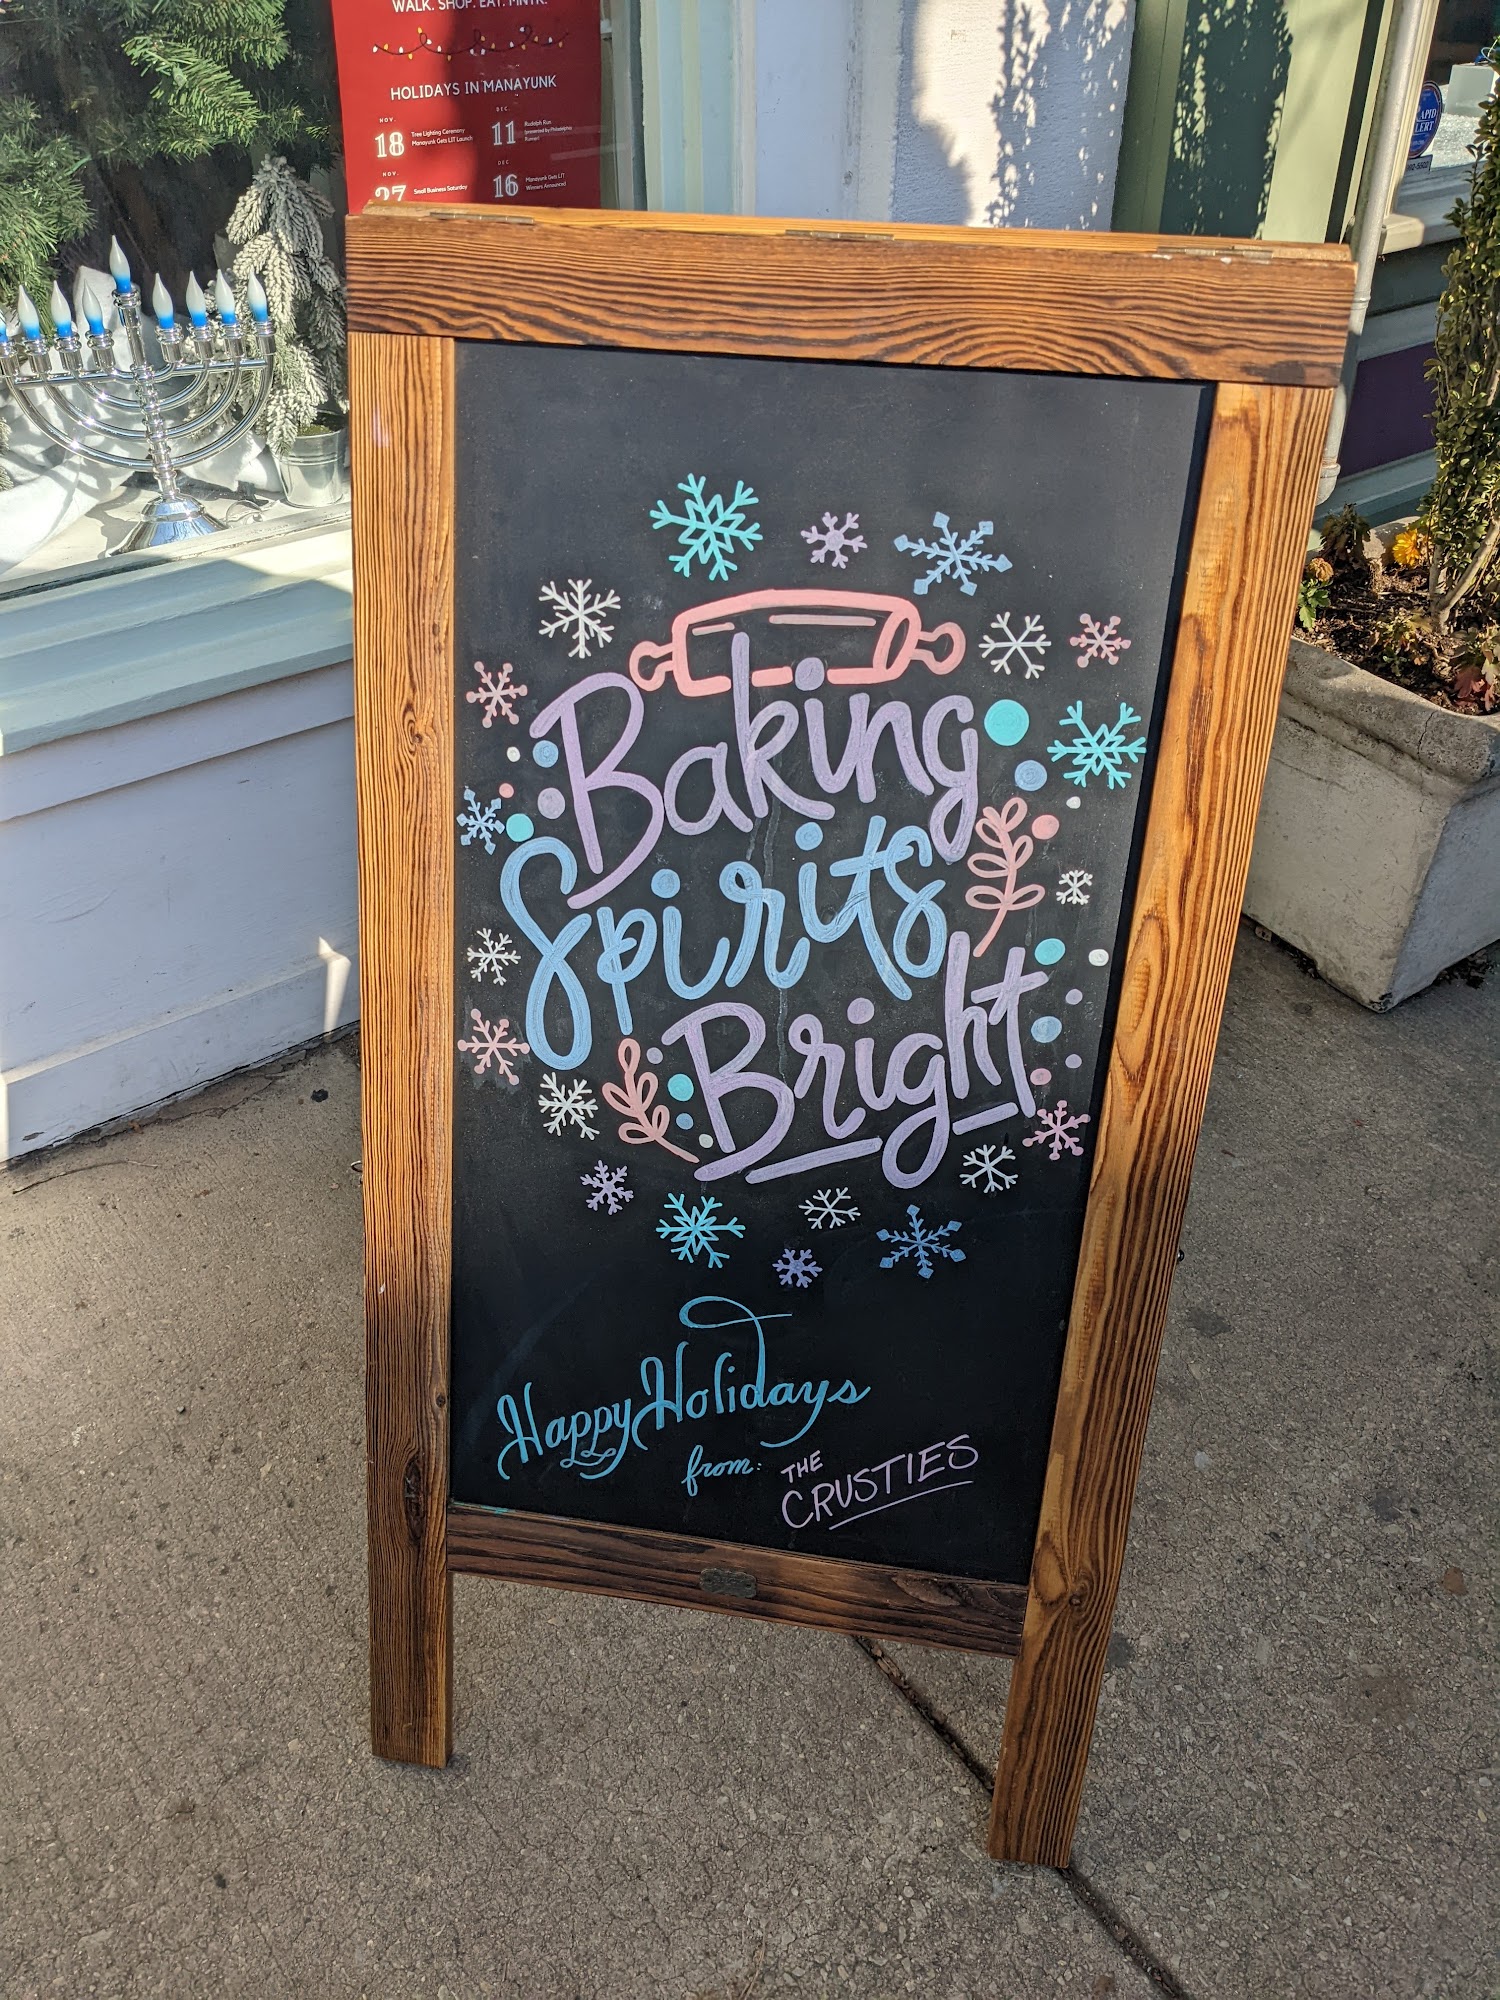 WALK. SHOP. EAT. MNYK.
HOLIDAYS IN MANAYUNK
NOV.
18
Tree Lighting Ceremony
Manayunk Gets LIT Launch
DEC.
11
Rudolph Run
presented by Philadelphia
Runner
NOV.
27
Small Business Saturday
DEC
16
Manayunk Gets LIT
Winners Announced
RAPID
ALERT
Baking
Spirits
Bright
Happy Holidays
from:
THE
CRUSTIES